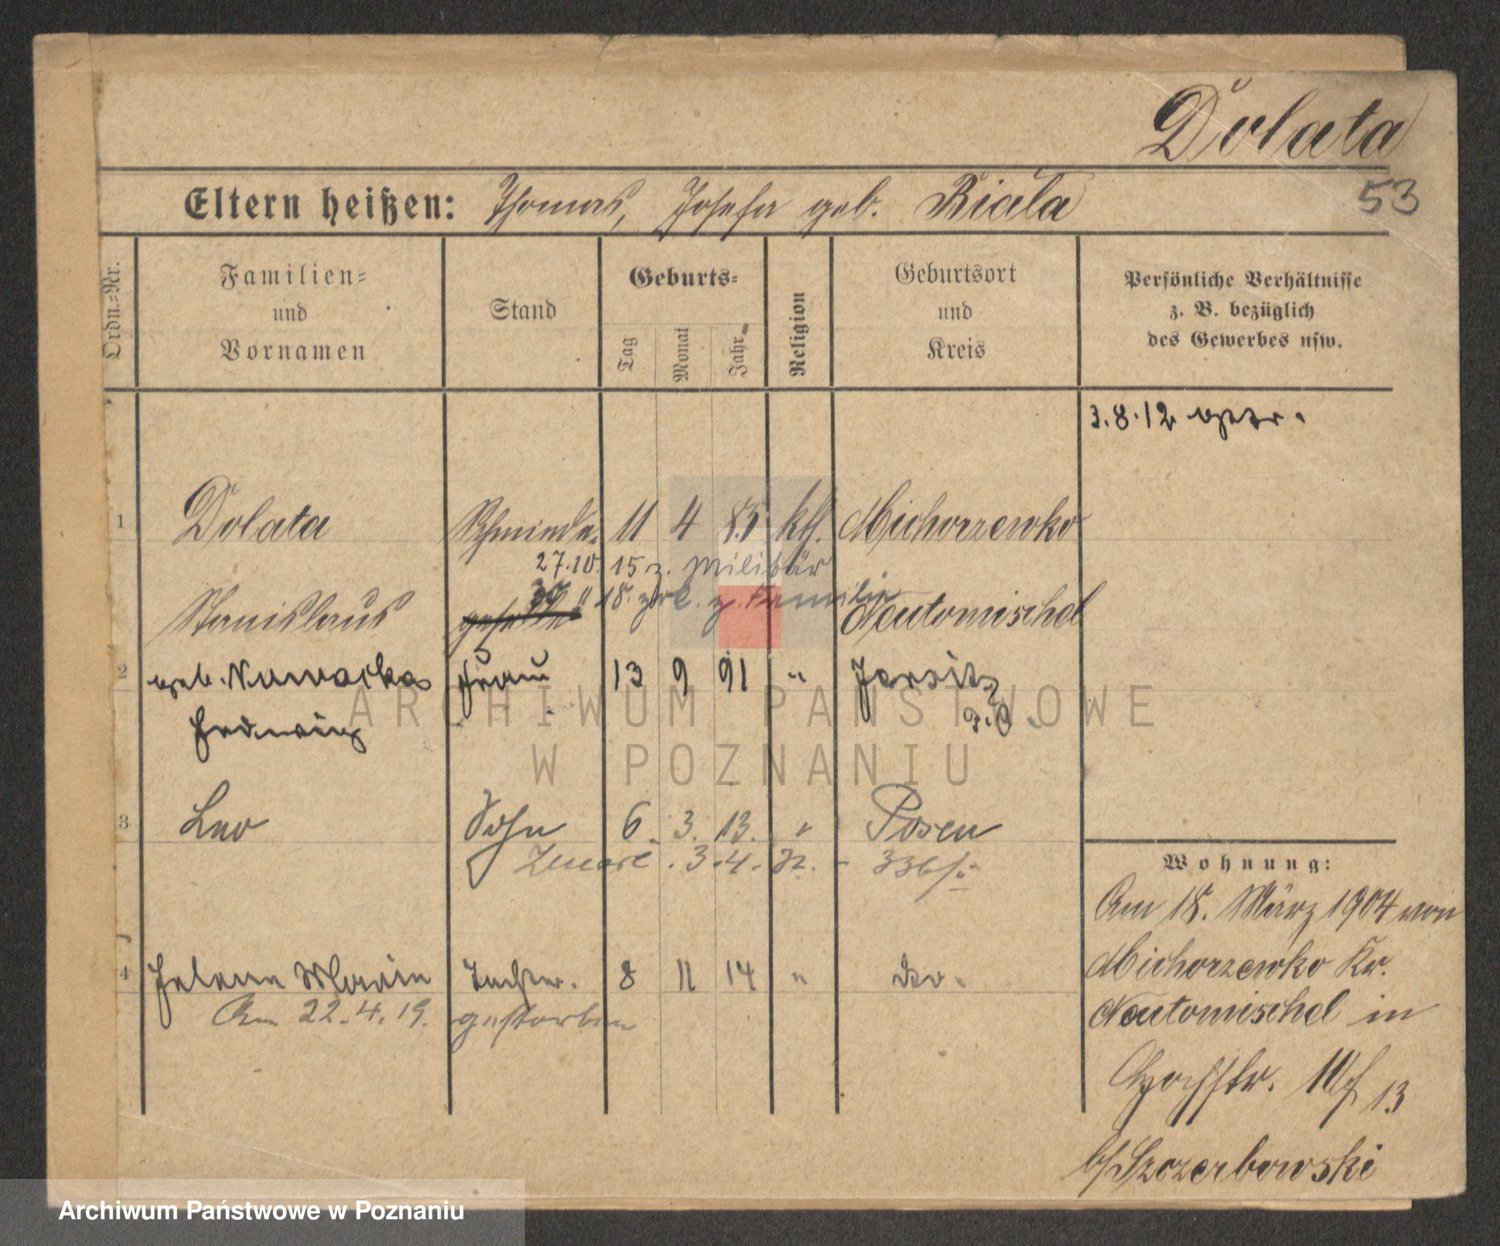 Dolata
53
Eltern heißen: Thomas, Josefa geb. Biała
Ordn.-Nr.
Familien- und Vornamen
Stand
Geburts-
Tag
Monat
Jahr
Religion
Geburtsort und Kreis
Persönliche Verhältnisse z. B. bezüglich des Gewerbes usw.
3.8.12
1 Dolata Schmiede- 11 4 85 kth. Michorzewko
27.10. 15 z. Militär
30 11 18. zrk. z. Familie
Stanislaus geselle Neutomischel
2 geb. Nawacka Frau 13 9 91 " Jersitz
Hedwig P. O.
3 Leo Sohn 6. 3. 13. " Posen
3.4.
4 Helena Maria Tochter. 8 11 14 " do.
Am 22.4.19. gestorben
Wohnung:
Am 18. März 1904 von
Michorzewko Kr.
Neutomischel in
13
b/Szczerbowski
ARCHIWUM PAŃSTWOWE
W POZNANIU
Archiwum Państwowe w Poznaniu